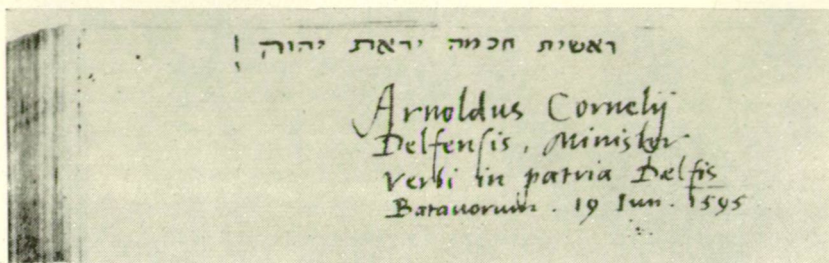 ראשית חכמה יראת יהוה
Arnoldus Cornelij
Delfensis, Minister
Verbi in patria Delfis
Batavorum. 19 Iun. 1595